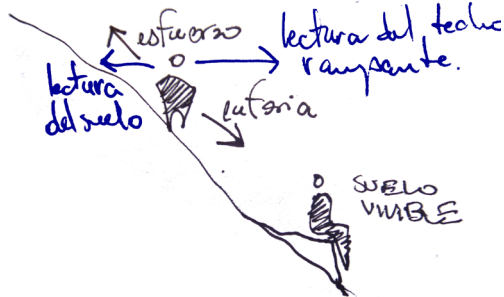 esfuerzo
lectura del techo
rampante.
lectura
del suelo
euforia
SUELO
VIVIBLE